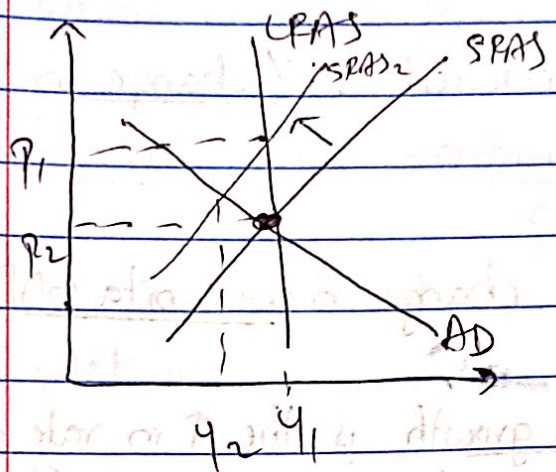 LRAS
SRAS2
SRAS
P1
P2
AD
Y2 Y1